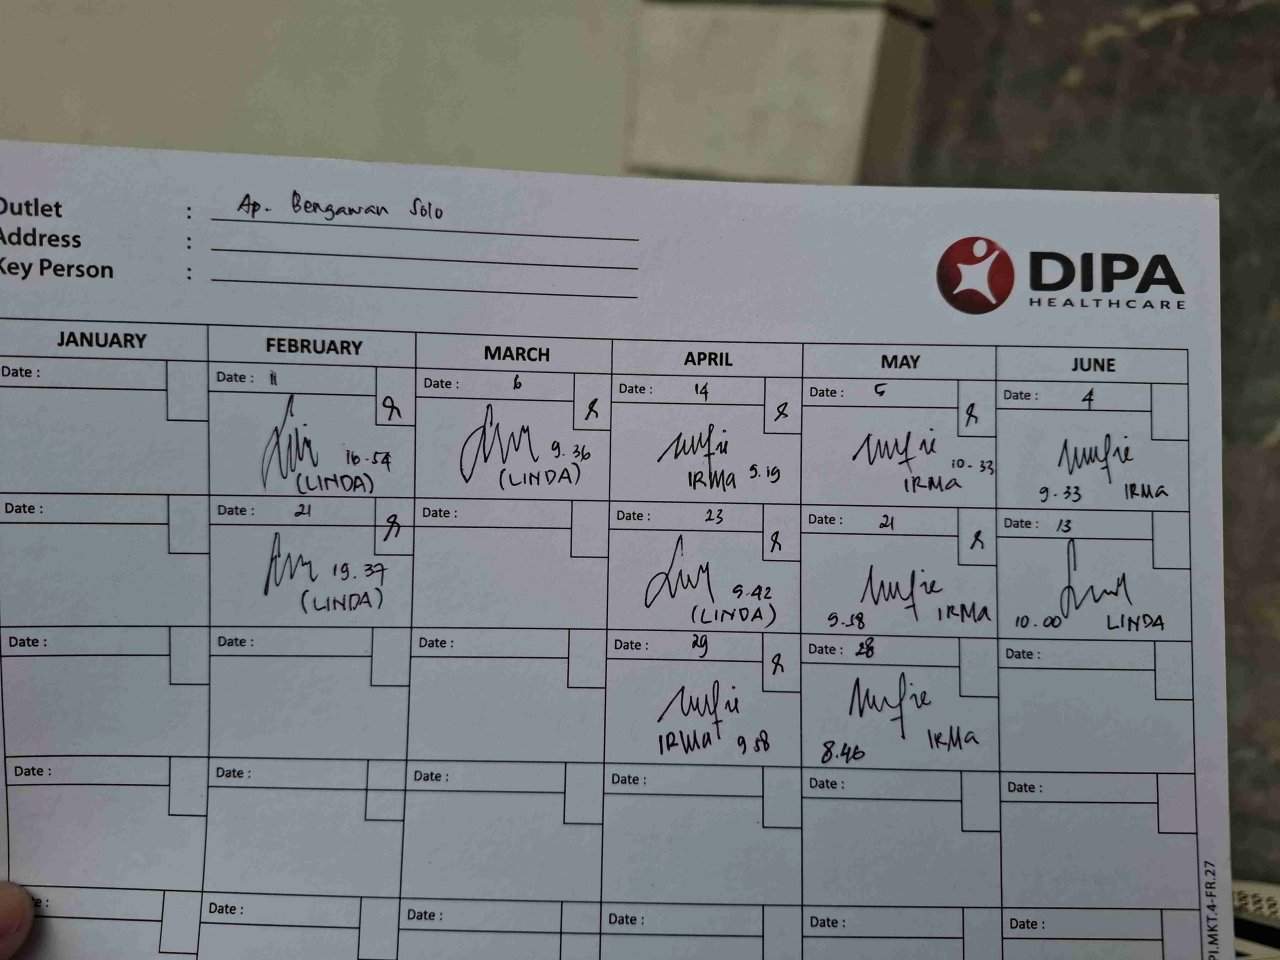 Outlet : Ap. Bengawan Solo
Address :
Key Person :
DIPA
HEALTHCARE
JANUARY FEBRUARY MARCH APRIL MAY JUNE
Date : Date : 11 Date : 6 Date : 14 Date : 5 Date : 4
16-54 9.36 9.19 10-33 9.33
(LINDA) (LINDA) IRMA IRMA IRMA
Date : Date : 21 Date : Date : 23 Date : 21 Date : 13
19.37 9.42 9.58 10.00
(LINDA) (LINDA) IRMA LINDA
Date : Date : Date : Date : 29 Date : 28 Date :
IRMA 9.58 8.46 IRMA
Date : Date : Date : Date : Date : Date :
Date : Date : Date : Date : Date :
PI.MKT.4-FR.27